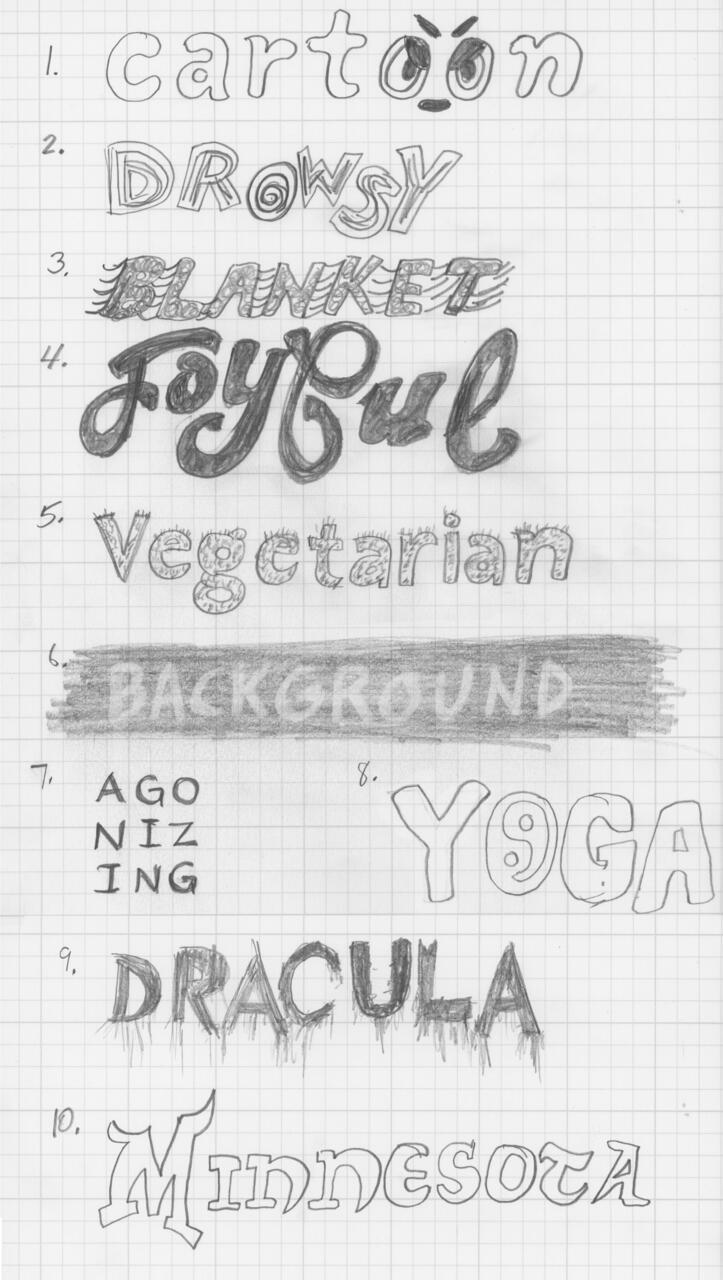 1. cartoon
2. DROWSY
3. BLANKET
4. Joyful
5. Vegetarian
6. BACKGROUND
7. AGO
NIZ
ING
8. YOGA
9. DRACULA
10. MINNESOTA